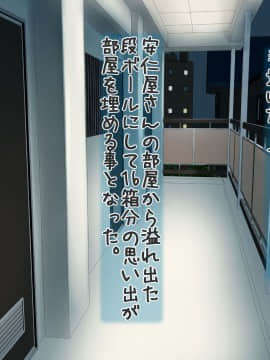 安仁屋さんの部屋から溢れ出た
段ボールにして16箱分の思い出が
部屋を埋める事となった。